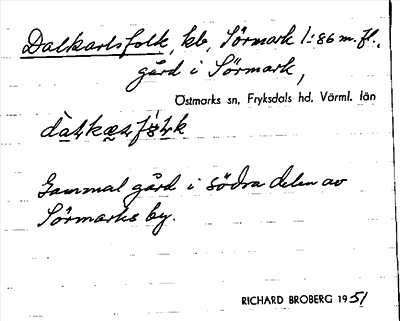 Dalkarlsfolk, kb. Sörmark 1:86 m.fl.,
gård i Sörmark,
Östmarks sn, Fryksdals hd, Värml. län
Gammal gård i södra delen av
Sörmarks by.
RICHARD BROBERG 1951